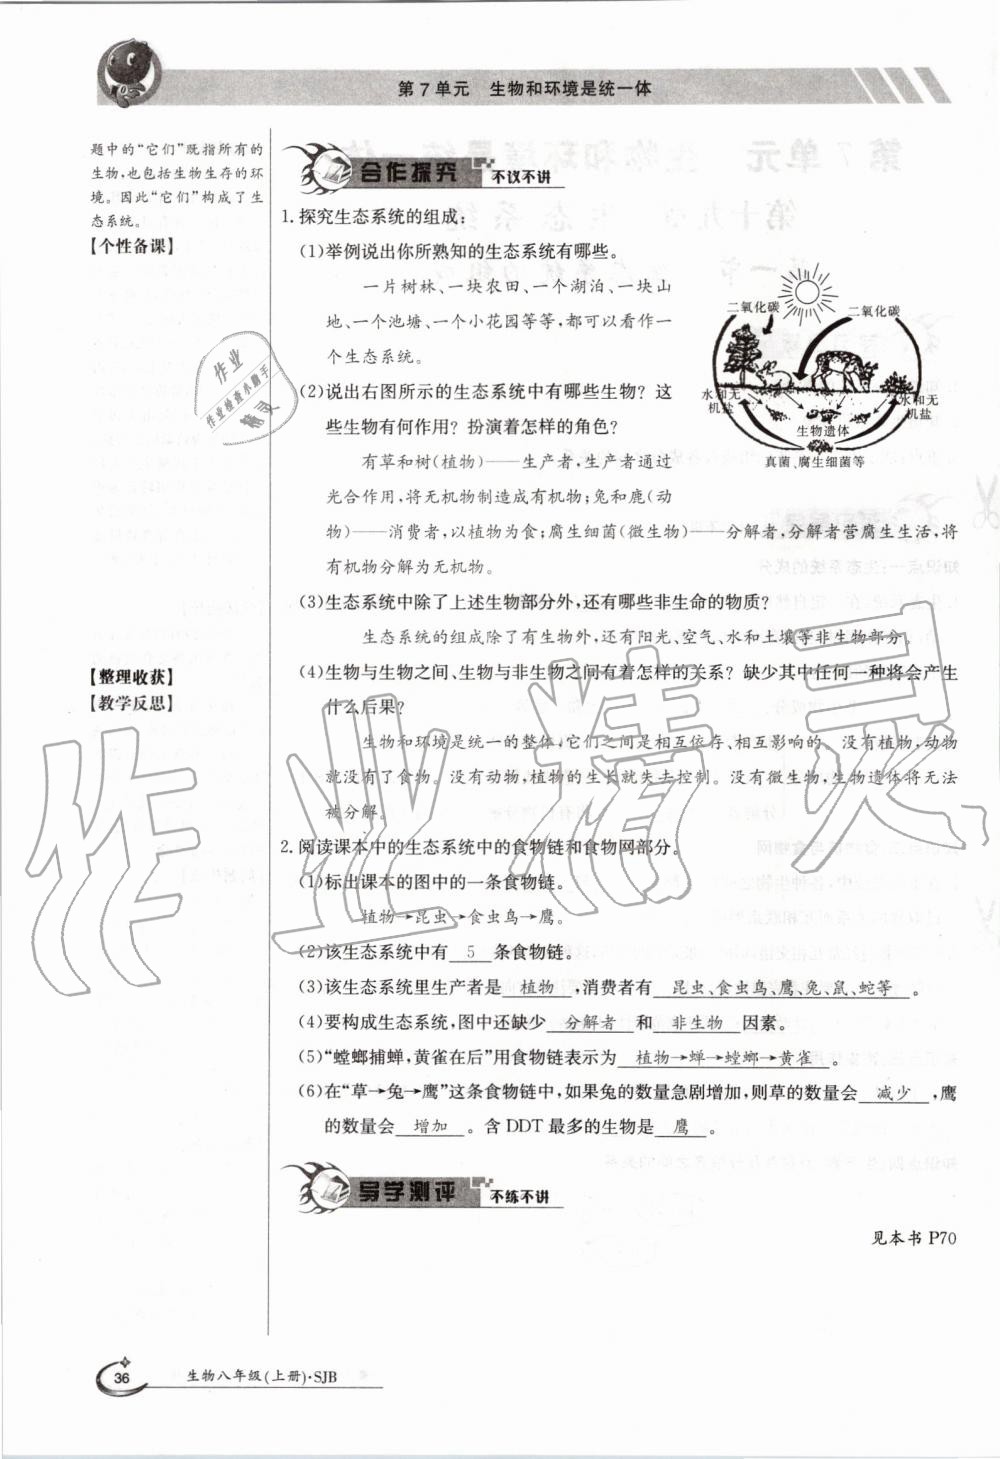 第7单元 生物和环境是统一体
题中的“它们”既指所有的
生物,也包括生物生存的环
境。因此“它们”构成了生
态系统。
【个性备课】
【整理收获】
【教学反思】
合作探究 不议不讲
1.探究生态系统的组成:
(1)举例说出你所熟知的生态系统有哪些。
一片树林、一块农田、一个湖泊、一块山
地、一个池塘、一个小花园等等,都可以看作一
个生态系统。
(2)说出右图所示的生态系统中有哪些生物?这
些生物有何作用?扮演着怎样的角色?
有草和树(植物)——生产者,生产者通过
光合作用,将无机物制造成有机物;兔和鹿(动
物)——消费者,以植物为食;腐生细菌(微生物)——分解者,分解者营腐生生活,将
有机物分解为无机物。
二氧化碳 二氧化碳
水和无
机盐
水和无
机盐
生物遗体
真菌、腐生细菌等
(3)生态系统中除了上述生物部分外,还有哪些非生命的物质?
生态系统的组成除了有生物外,还有阳光、空气、水和土壤等非生物部分。
(4)生物与生物之间、生物与非生物之间有着怎样的关系?缺少其中任何一种将会产生
什么后果?
生物和环境是统一的整体,它们之间是相互依存、相互影响的。没有植物,动物
就没有了食物。没有动物,植物的生长就失去控制。没有微生物,生物遗体将无法
被分解。
2.阅读课本中的生态系统中的食物链和食物网部分。
(1)标出课本的图中的一条食物链。
植物→昆虫→食虫鸟→鹰。
(2)该生态系统中有 5 条食物链。
(3)该生态系统里生产者是 植物 ,消费者有 昆虫、食虫鸟、鹰、兔、鼠、蛇等 。
(4)要构成生态系统,图中还缺少 分解者 和 非生物 因素。
(5)“螳螂捕蝉,黄雀在后”用食物链表示为 植物→蝉→螳螂→黄雀 。
(6)在“草→兔→鹰”这条食物链中,如果兔的数量急剧增加,则草的数量会 减少 ,鹰
的数量会 增加 。含 DDT 最多的生物是 鹰 。
导学测评 不练不讲
见本书 P70
36 生物八年级(上册)·SJB
作业
作业检查小助手
精灵
作业精灵